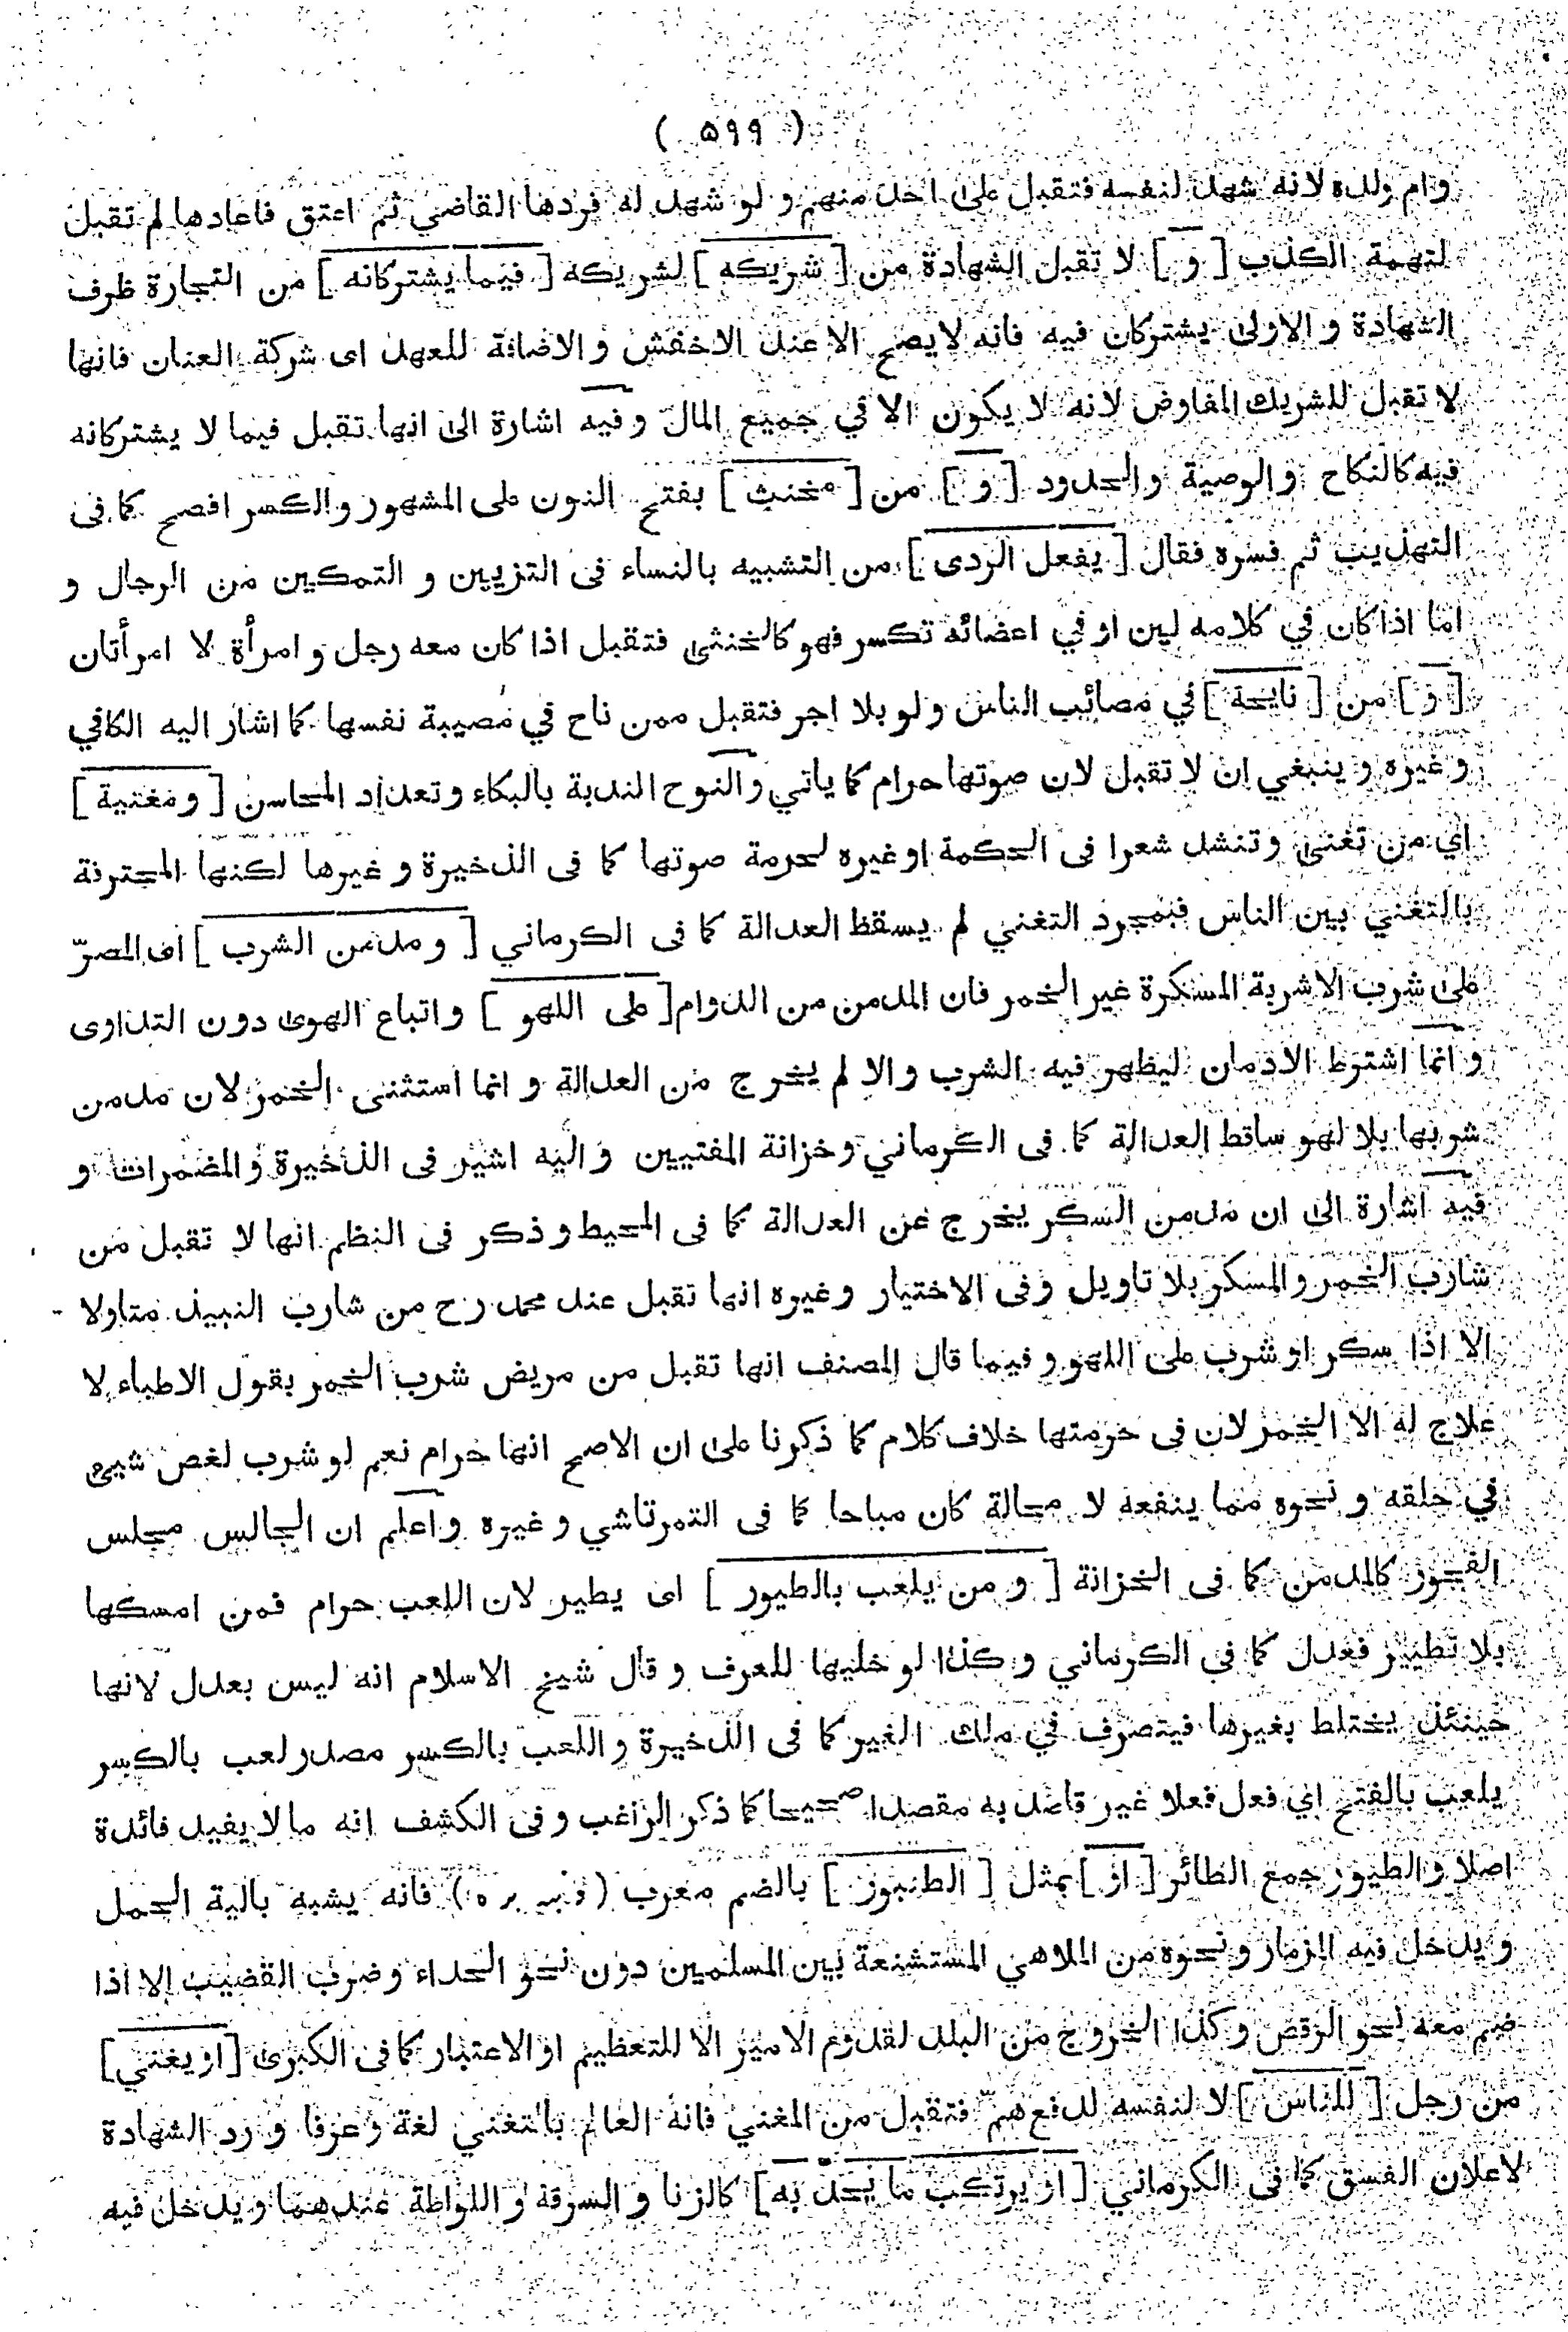 ( ۵۹۹ )
وام ولده لانه شهد لنفسه فتقبل على احد منهم و لو شهد له فردها القاضي ثم اعتق فاعادها لم تقبل
لتهمة الكذب [ و ] لا تقبل الشهادة من [ شريكه ] لشريكه [ فيما يشتركانه ] من التجارة ظرف
الشهادة و الاولى يشتركان فيه فانه لايصح الا عند الاخفش و الاضافة للعهد اى شركة العنان فانها
لا تقبل للشريك المفاوض لانه لا يكون الا في جميع المال و فيه اشارة الى انها تقبل فيما لا يشتركانه
فيه كالنكاح والوصية والحدود [ و ] من [ مخنث ] بفتح النون على المشهور والكسر افصح كما فى
التهذيب ثم فسره فقال [ يفعل الردى ] من التشبيه بالنساء فى التزيين و التمكين من الرجال و
اما اذا كان في كلامه لين او في اعضائه تكسر فهو كالخنثى فتقبل اذا كان معه رجل و امرأة لا امرأتان
[ و ] من [ نايحة ] في مصائب الناس ولو بلا اجر فتقبل ممن ناح في مصيبة نفسها كما اشار اليه الكافي
و غيره و ينبغي ان لا تقبل لان صوتها حرام كما ياتي والنوح الندبة بالبكاء وتعداد المحاسن [ ومغنية ]
اي من تغنى وتنشد شعرا فى الحكمة اوغيره لحرمة صوتها كما فى الذخيرة و غيرها لكنها المحترفة
بالتغني بين الناس فبمجرد التغني لم يسقط العدالة كما فى الكرماني [ و مدمن الشرب ] اى المصرّ
على شرب الاشربة المسكرة غير الخمر فان المدمن من الدوام [ على اللهو ] واتباع الهوى دون التداوى
و انما اشترط الادمان ليظهر فيه الشرب والا لم يخرج من العدالة و انما استثنى الخمر لان مدمن
شربها بلا لهو ساقط العدالة كما فى الكرماني وخزانة المفتيين و اليه اشير فى الذخيرة والمضمرات و
فيه اشارة الى ان مدمن السكر يخرج عن العدالة كما فى المحيط و ذكر فى النظم انها لا تقبل من
شارب الخمر والمسكر بلا تاويل وفى الاختيار وغيره انها تقبل عند محمد رح من شارب النبيذ متاولا
الا اذا سكر او شرب على اللهو و فيما قال المصنف انها تقبل من مريض شرب الخمر بقول الاطباء لا
علاج له الا الخمر لان فى حرمتها خلاف كلام كما ذكرنا على ان الاصح انها حرام نعم لو شرب لغص شيئ
في حلقه و نحوه مما ينفعه لا محالة كان مباحا كما فى التمرتاشي و غيره واعلم ان الجالس مجلس
الفجور كالمدمن كما فى الخزانة [ و من يلعب بالطيور ] اى يطير لان اللعب حرام فمن امسكها
بلا تطيير فعدل كما فى الكرماني و كذا لو خليها للعرف و قال شيخ الاسلام انه ليس بعدل لانها
حينئذ يختلط بغيرها فيتصرف في ملك الغير كما فى الذخيرة واللعب بالكسر مصدر لعب بالكسر
يلعب بالفتح اي فعل فعلا غير قاصد به مقصدا صحيحا كما ذكر الراغب وفى الكشف انه ما لا يفيد فائدة
اصلا والطيور جمع الطائر [ او ] بمثل [ الطنبور ] بالضم معرب فانه يشبه بالية الحمل
و يدخل فيه المزمار و نحوه من الملاهي المستشنعة بين المسلمين دون نحو الحداء وضرب القضيب الا اذا
ضم معه نحو الرقص و كذا الخروج من البلد لقدوم الامير الا للتعظيم او الاعتبار كما فى الكبرى [ او يغني ]
من رجل [ للناس ] لا لنفسه لدفع همّ فتقبل من المغني فانه العالم بالتغني لغة وعرفا و رد الشهادة
لاعلان الفسق كما فى الكرماني [ او يرتكب ما يحد به ] كالزنا و السرقة و اللواطة عندهما و يدخل فيه